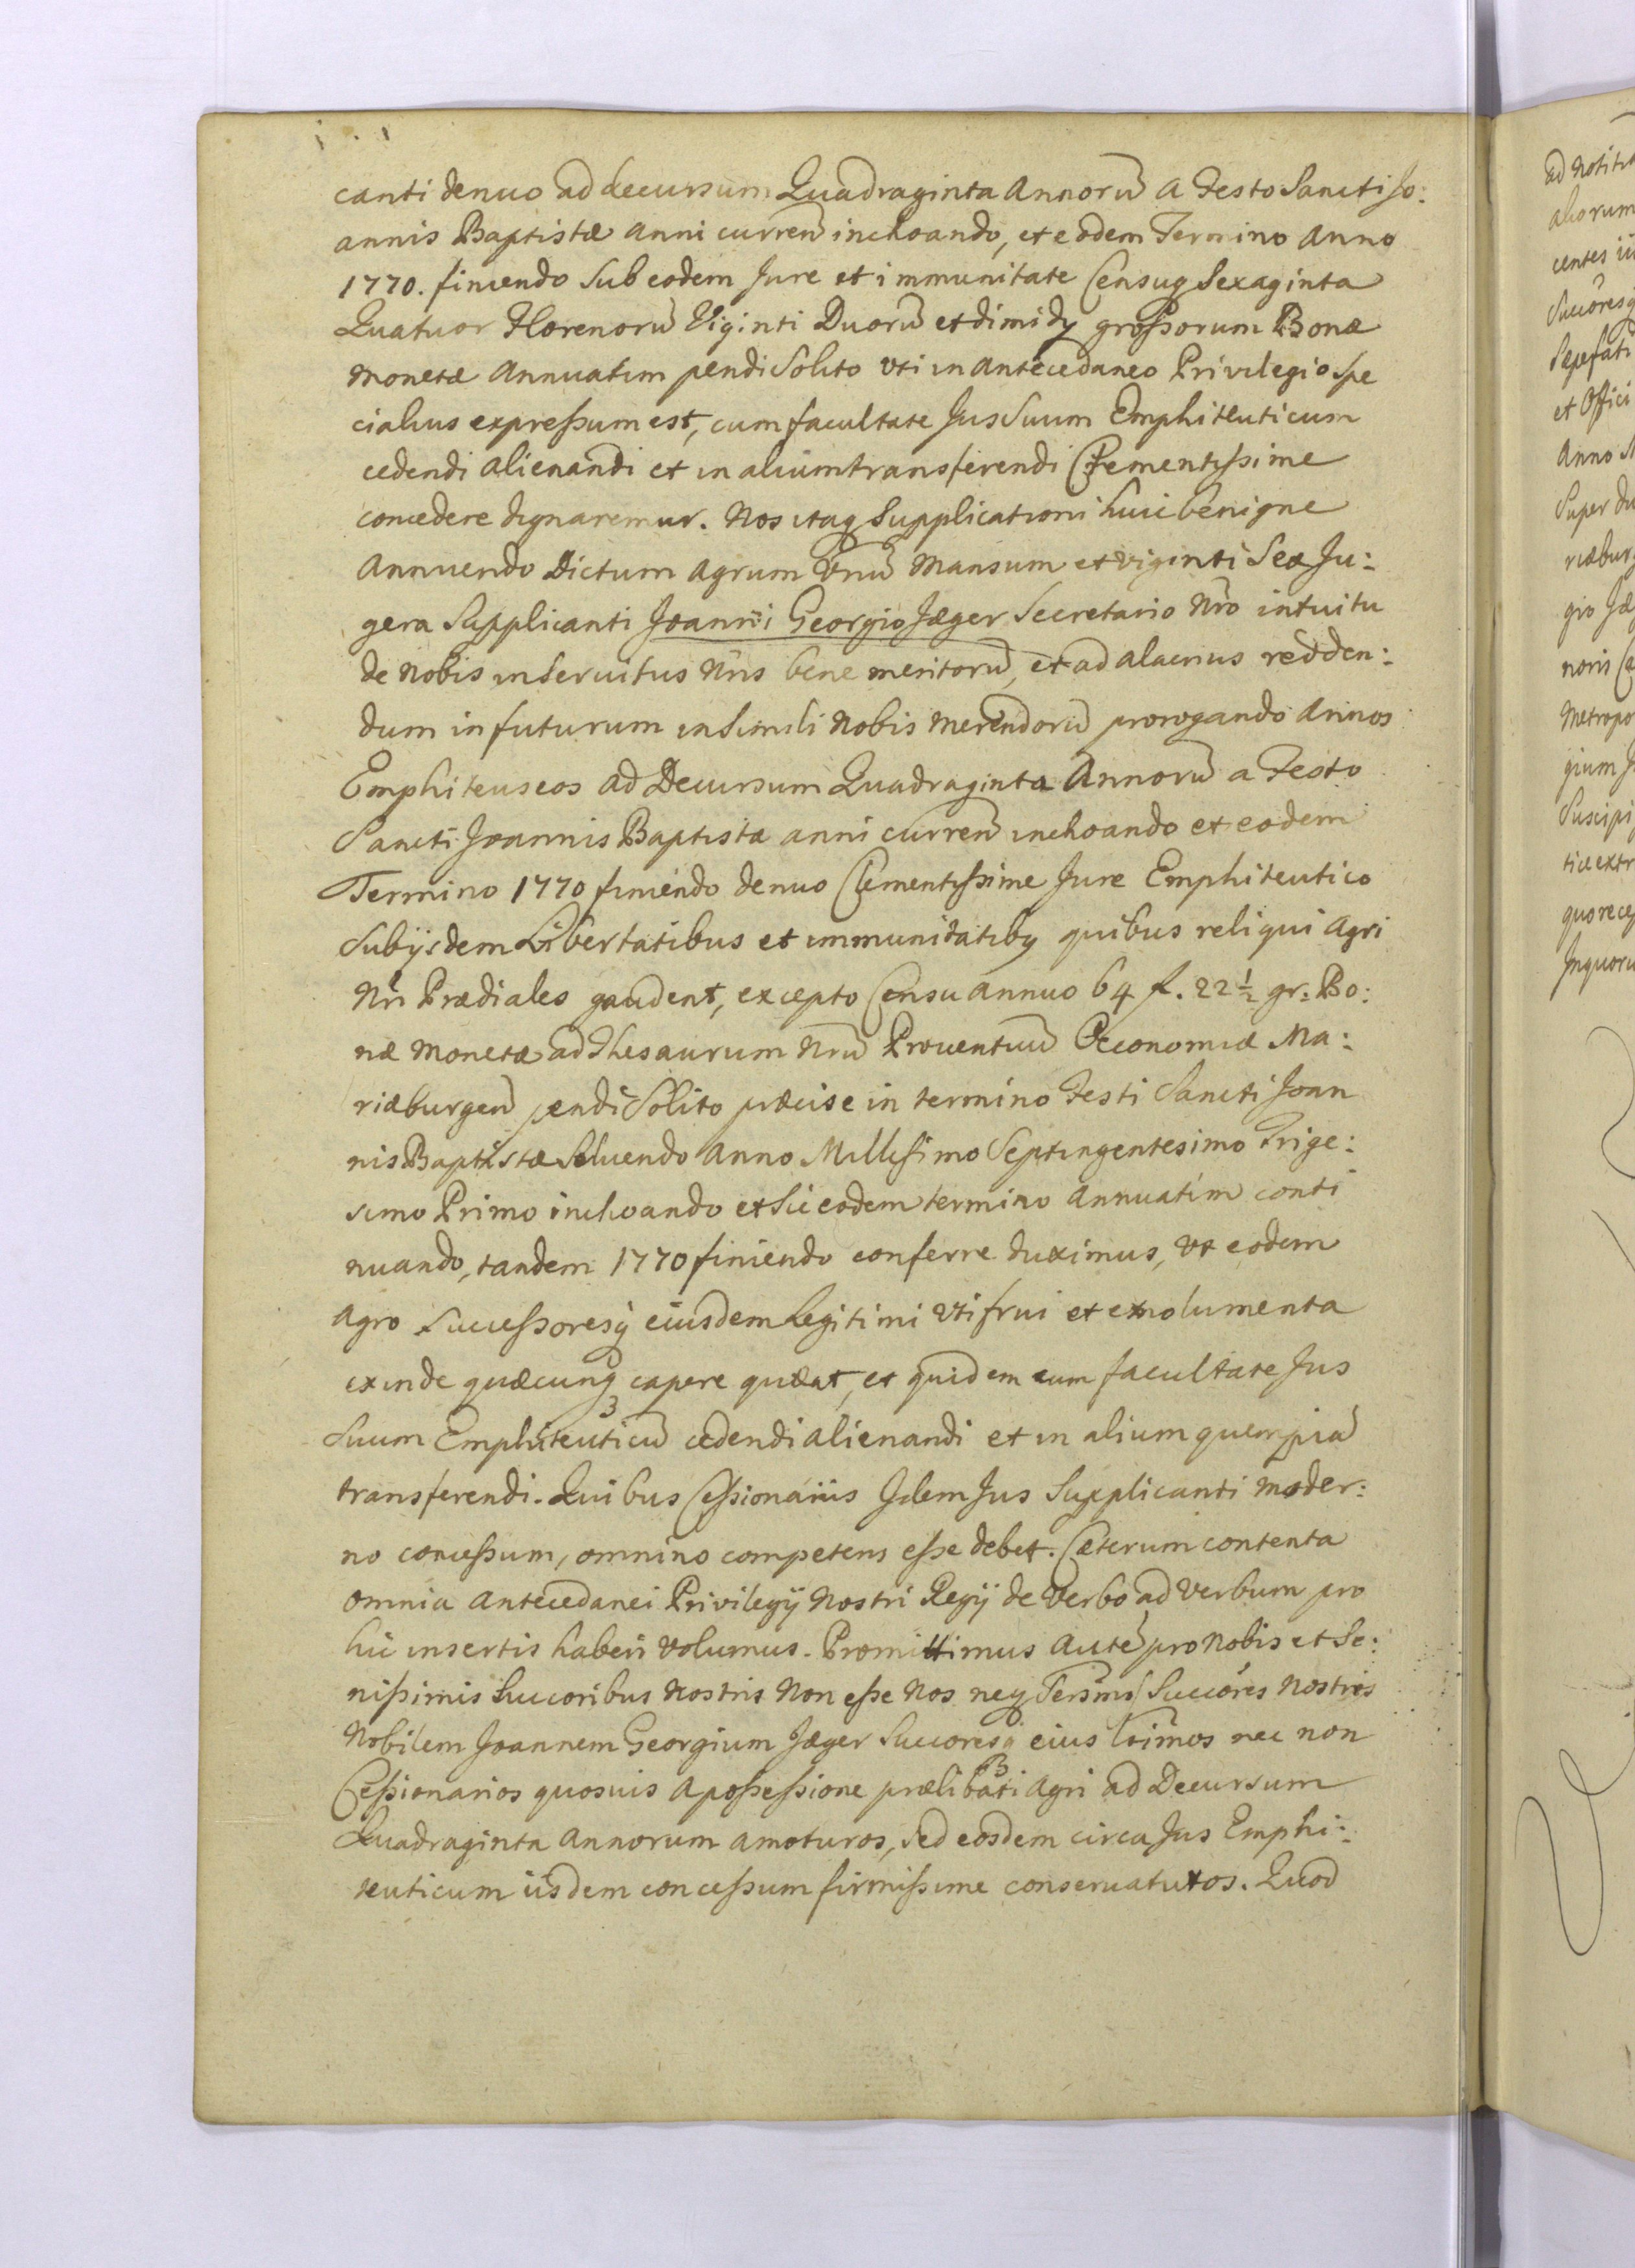 canti denuo ad decursum Quadraginta Annorū a Festo Sancti Jo:
annis Baptistæ anni curreñ inchoando, et eodem Termino Anno
1770. finiendo Sub eodem Jure et immunitate Censusq Sexaginta
Quatuor Florenorū Viginti Duorū et dimidÿ großorum Bonæ
Monetæ Annuatim pendi Solito uti in antecedaneo Privilegio spe
cialius expreßum est, cum facultate Jus Suum Emphiteuticum
cedendi alienandi et in alium transferendi Clementißime
concedere dignaremur. Nos itaq Supplicationi huic benigne
Annuendo Dictum Agrum Unū Mansum et viginti Sex Ju:
gera Supplicanti Joanni Georgio Jæger Secretario Nr̃o intuitu
de nobis inservitus Nr̃is bene meritorū, et ad alacrius redden:
dum in futurum in Simili Nobis merendorū prorogando Annos
Emphiteuseos ad Decursum Quadraginta Annorū a Festo
Sancti Joannis Baptista anni curreñ inchoando et eodem
Termino 1770 finiendo denuo Clementißime Jure Emphiteutico
Sub ijsdem Libertatibus et immunitatibq quibus reliqui Agri
Nr̃i Prædiales gaudent, excepto Censu annuo 64 f. 22 ½ gr: Bo:
næ Monetæ ad Thesaurum Nr̃ū Proventuū Oeconomiæ Ma:
riæburgeñ pendi Solito præcise in termino Festi Sancti Joan
nis Baptistæ Solvendo Anno Millesimo Septingentesimo Trige:
simo Primo inchoando et sic eodem termino Annuatim conti
nuando, tandem 1770 finiendo conferre duximus, Ut eodem
Agro Succeßoresq eiusdem Legitimi Uti frui et emolumenta
exinde quæcunq capere queat, et quidem cum facultate Jus
Suum Emphiteuticū cedendi alienandi et in alium quempiā
transferendi. Quibus Ceßionariis Idem Jus Supplicanti moder:
no conceßum, omnino competens eße debet. Cæterum contenta
omnia Antecedanei Privilegÿ Nostri Regÿ de Verbo ad Verbum pro
hic insertis haberi Volumus. Promittimus autē pro Nobis et Se:
nißimis Succoribus Nostris Non eße Nos neq Serm̃os Succores Nostros
Nobilem Joannem Georgium Jæger Succoresq eius Ltimos nec non
Ceßionarios quosvis a poßeßione prælibati Agri ad Decursum
Quadraginta Annorum amoturos, Sed eosdem circa Jus Emphi:
teuticum iisdem conceßum firmißime conservaturos. Quod